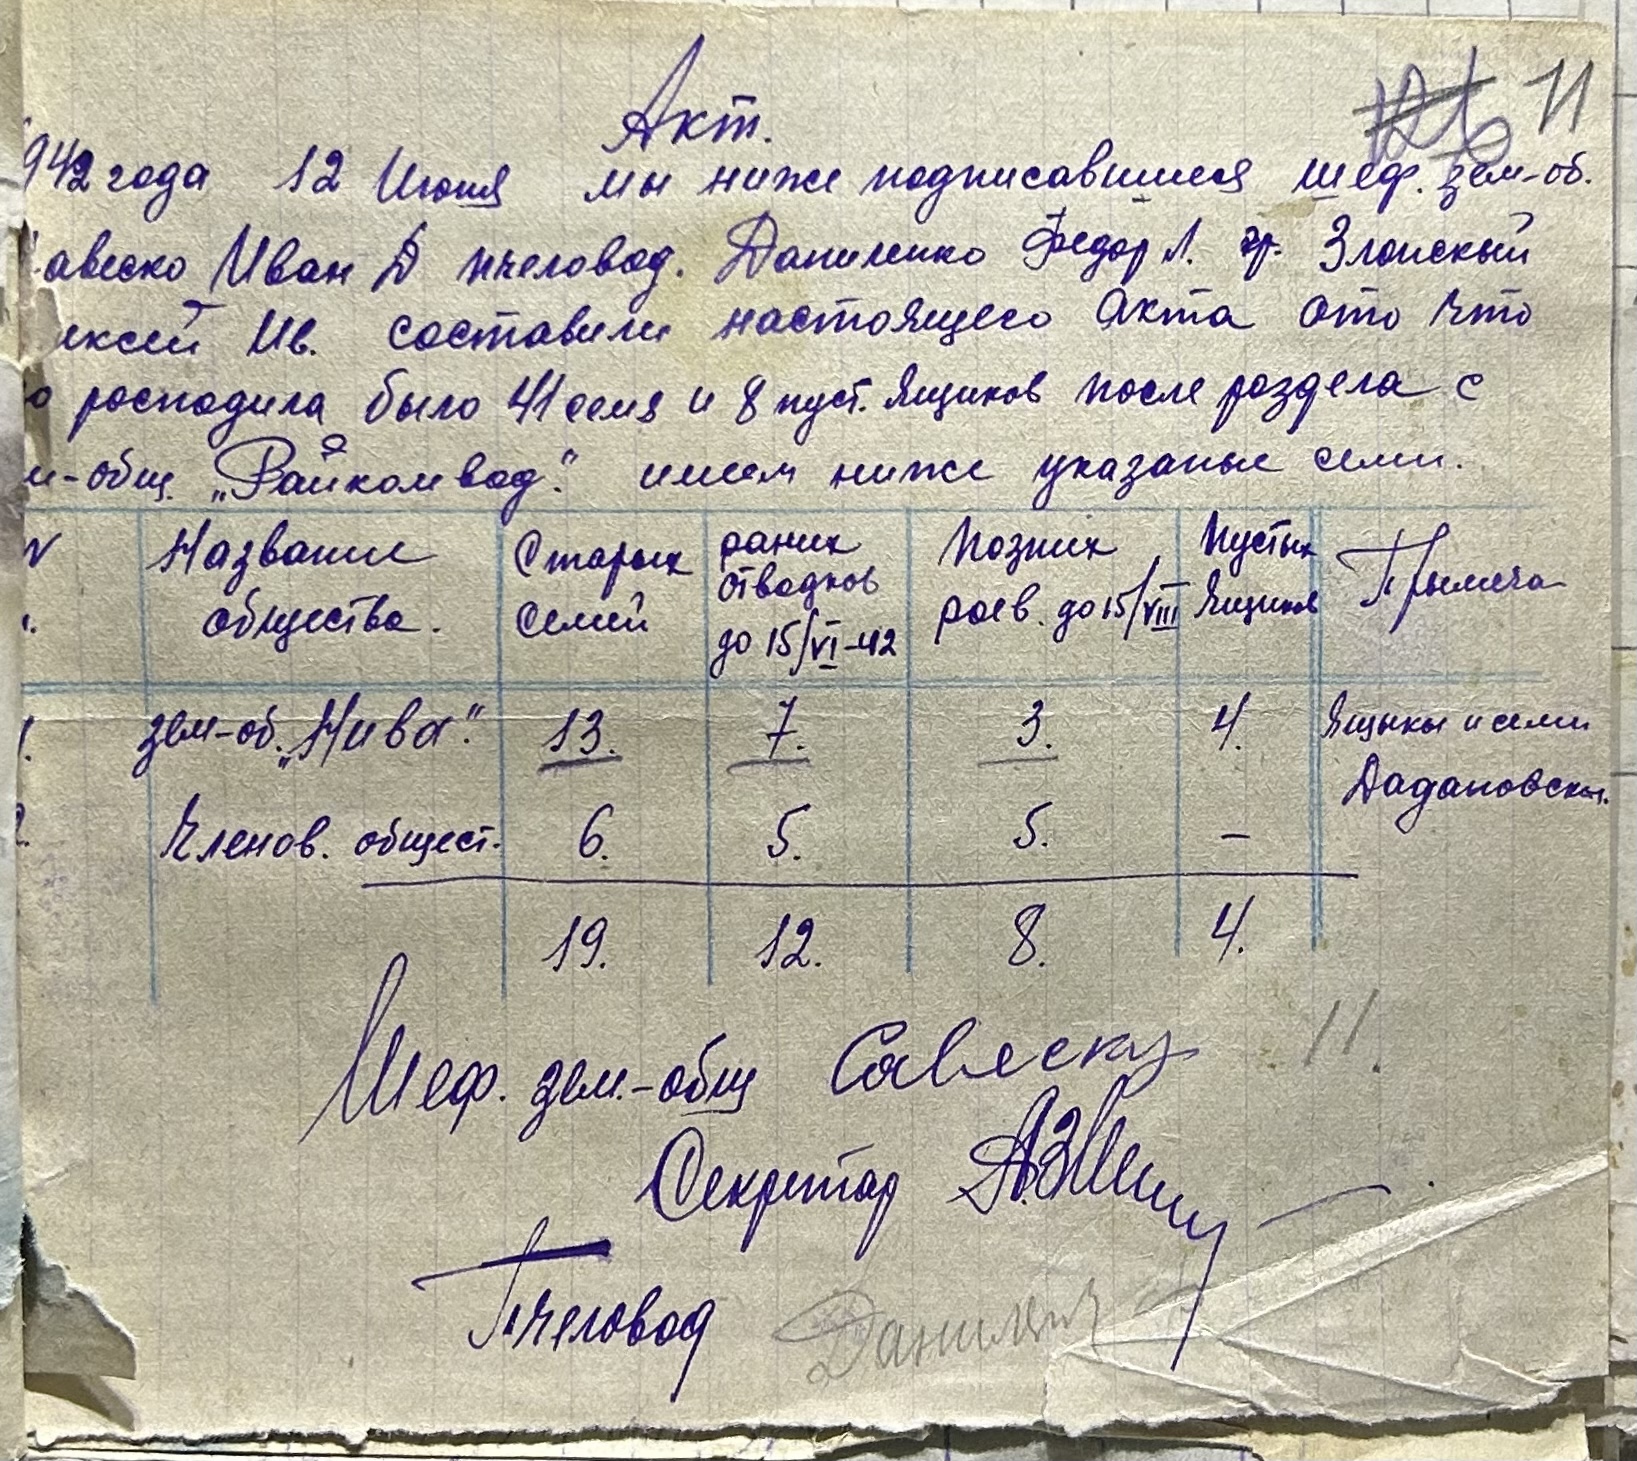 11
Акт.
942 года 12 Июня мы ниже подписавшиеся шеф. зем-об.
авеско Иван Д пчеловод. Даниленко Федор Л. гр. Злоиский
иксей Ив. составили настоящего Акта ото что
о росподила было 41 семя и 8 пуст. ящиков после роздела с
м-общ. „Райкомвод." имеем ниже указаные семи.
N Название Старых раних Позних Пустых Прымеча
общества. семей отводков роев. до 15/VIII ящиков
до 15/VI-42
1. зем-об. „Нива". 13. 7. 3. 4. Ящыкы и семи
Дадановскы.
2. Членов. общест. 6. 5. 5. –
19. 12. 8. 4.
11.
Шеф. зем.-общ Савеску
Секретар
Пчеловод Данилен